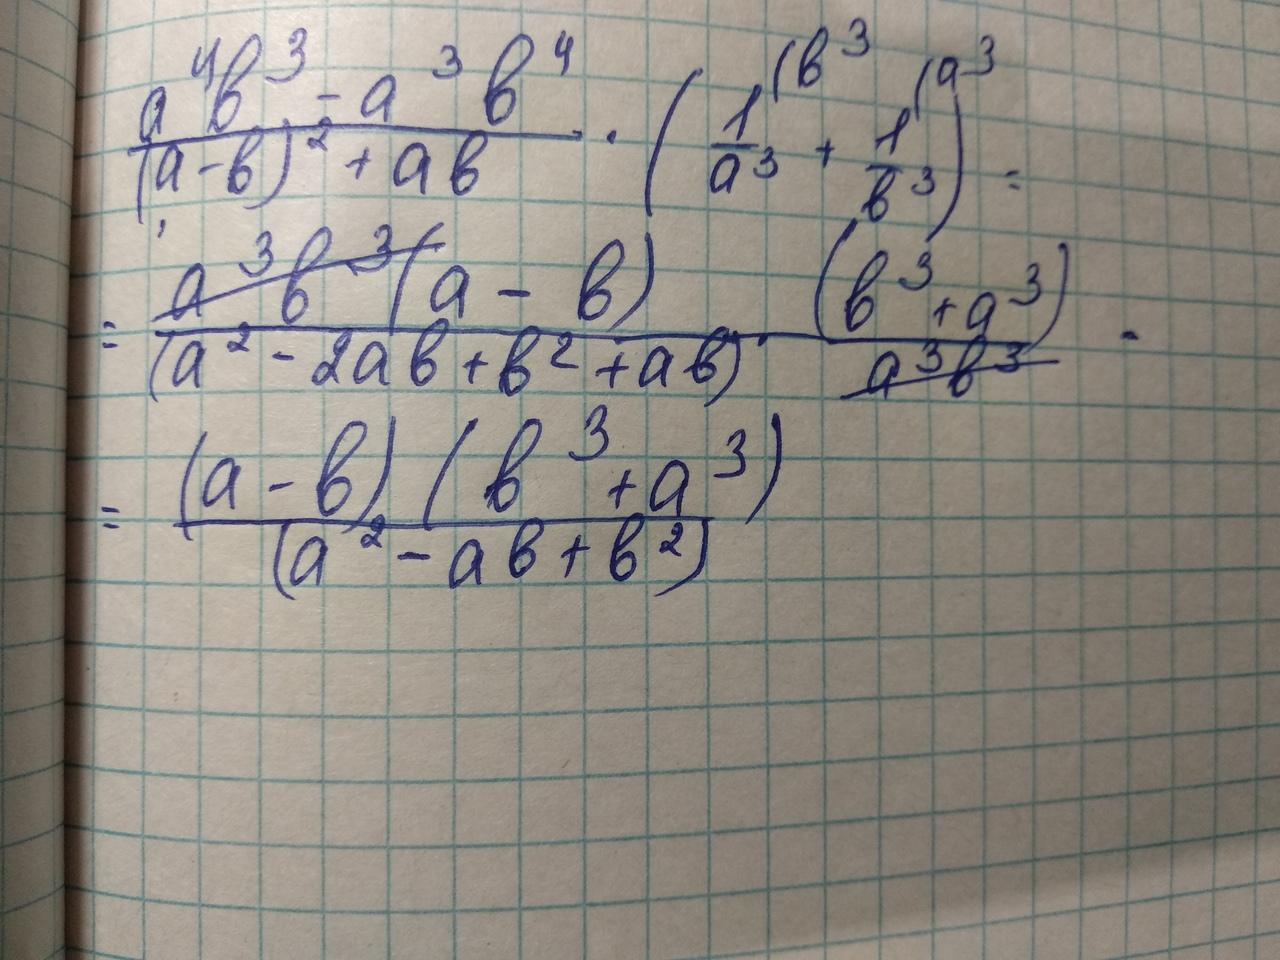 (a⁴b³ - a³b⁴)/((a-b)² + ab) · (1/a³ ⁽b³ + 1/b³ ⁽a³) =
= a³b³(a - b)/(a² - 2ab + b² + ab) · (b³ + a³)/a³b³ =
= (a - b)(b³ + a³)/(a² - ab + b²)